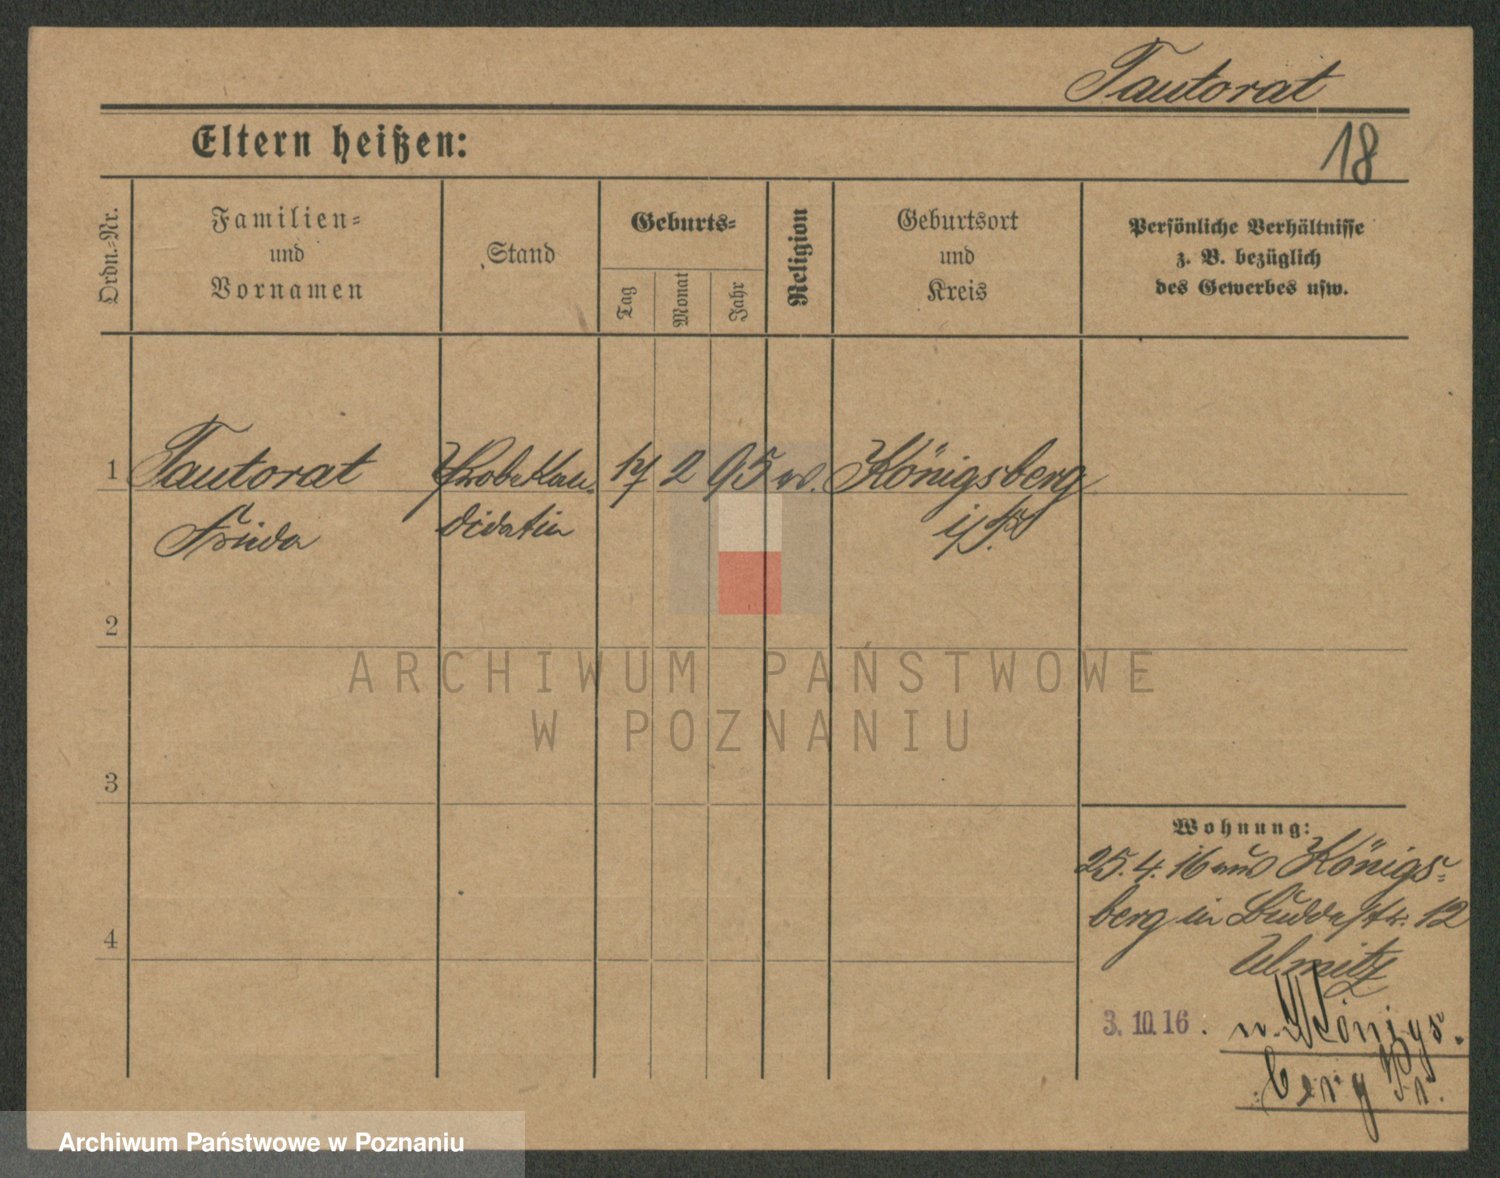 Tautorat
Eltern heißen:
18
Ordn.-Nr.
Familien-
und
Vornamen
Stand
Geburts-
Tag
Monat
Jahr
Religion
Geburtsort
und
Kreis
Persönliche Verhältnisse
z. B. bezüglich
des Gewerbes usw.
1 Tautorat Probekan- 17 2 95 ev. Königsberg
Frieda didatin i/Pr
2
ARCHIWUM PAŃSTWOWE
W POZNANIU
3
Wohnung:
25.4.16 aus Königs-
berg in Buddestr. 12
4
3. 10. 16. n. Königs-
berg Pr.
Archiwum Państwowe w Poznaniu